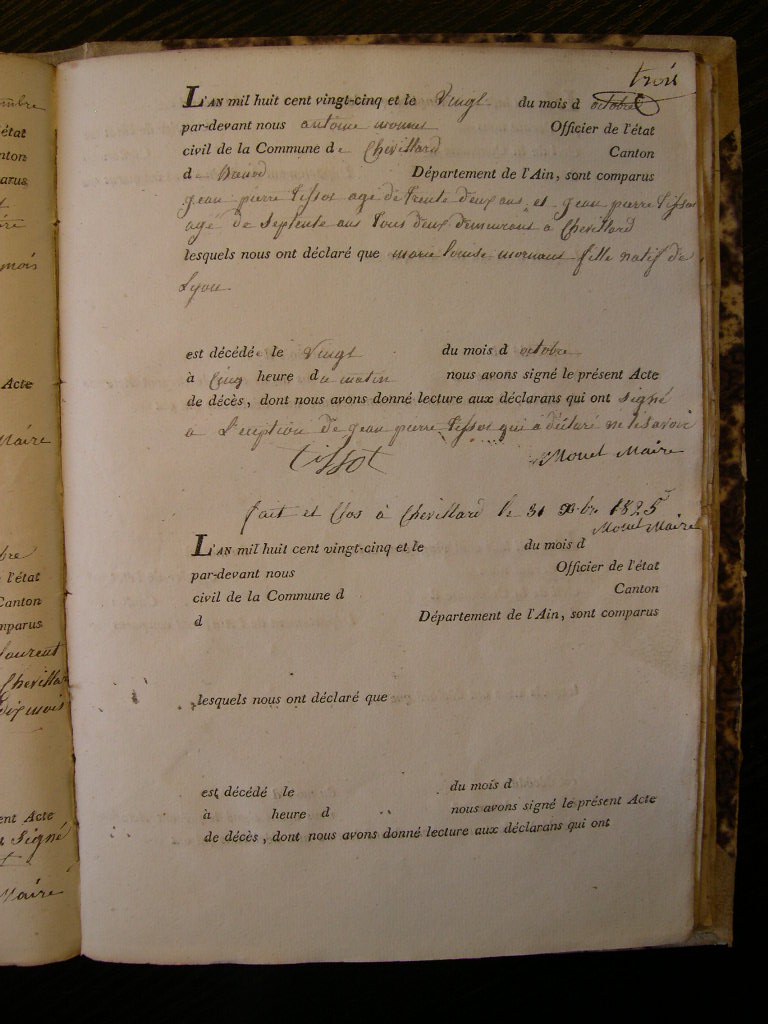 trois
L'AN mil huit cent vingt-cinq et le Vingt du mois d octobre
par-devant nous antoine monnet Officier de l'état
civil de la Commune de Chevillard Canton
de Département de l'Ain, sont comparus
jean pierre tissot agé de trente deux ans et jean pierre tissot
agé de septente ans tous deux demeurans a Chevillard
lesquels nous ont déclaré que marie louise fille natif de
Lyon
est décédée le Vingt du mois d octobre
à cinq heure du matin nous avons signé le présent Acte
de décès, dont nous avons donné lecture aux déclarans qui ont signé
a L'eception de jean pierre tissot qui a déclaré ne le savoir
tissot
Monet Maire
fait et Clos à Chevillard le 31 Xbre 1825
Monet Maire
L'AN mil huit cent vingt-cinq et le du mois d
par-devant nous Officier de l'état
civil de la Commune d Canton
d Département de l'Ain, sont comparus
lesquels nous ont déclaré que
est décédé le du mois d
à heure d nous avons signé le présent Acte
de décès, dont nous avons donné lecture aux déclarans qui ont